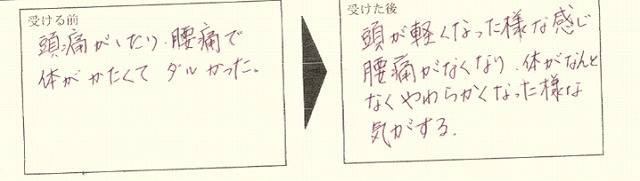 受ける前
頭痛がしたり、腰痛で
体がかたくて ダルかった。
受けた後
頭が軽くなった様な感じ
腰痛がなくなり、体がなんと
なくやわらかくなった様な
気がする.